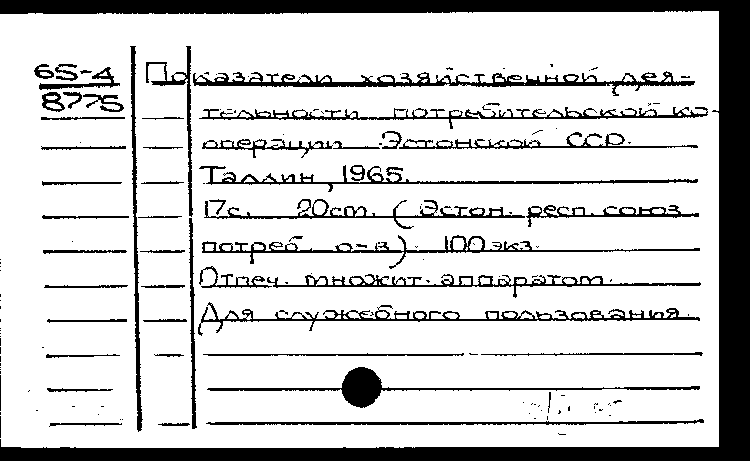 65-4
8775
Показатели хозяйственной дея-
тельности потребительской ко-
операции Эстонской ССР.
Таллин, 1965.
17с. 20см. (Эстон. респ. союз
потреб. о-в). 100 экз.
Отпеч. множит. аппаратом.
Для служебного пользования.